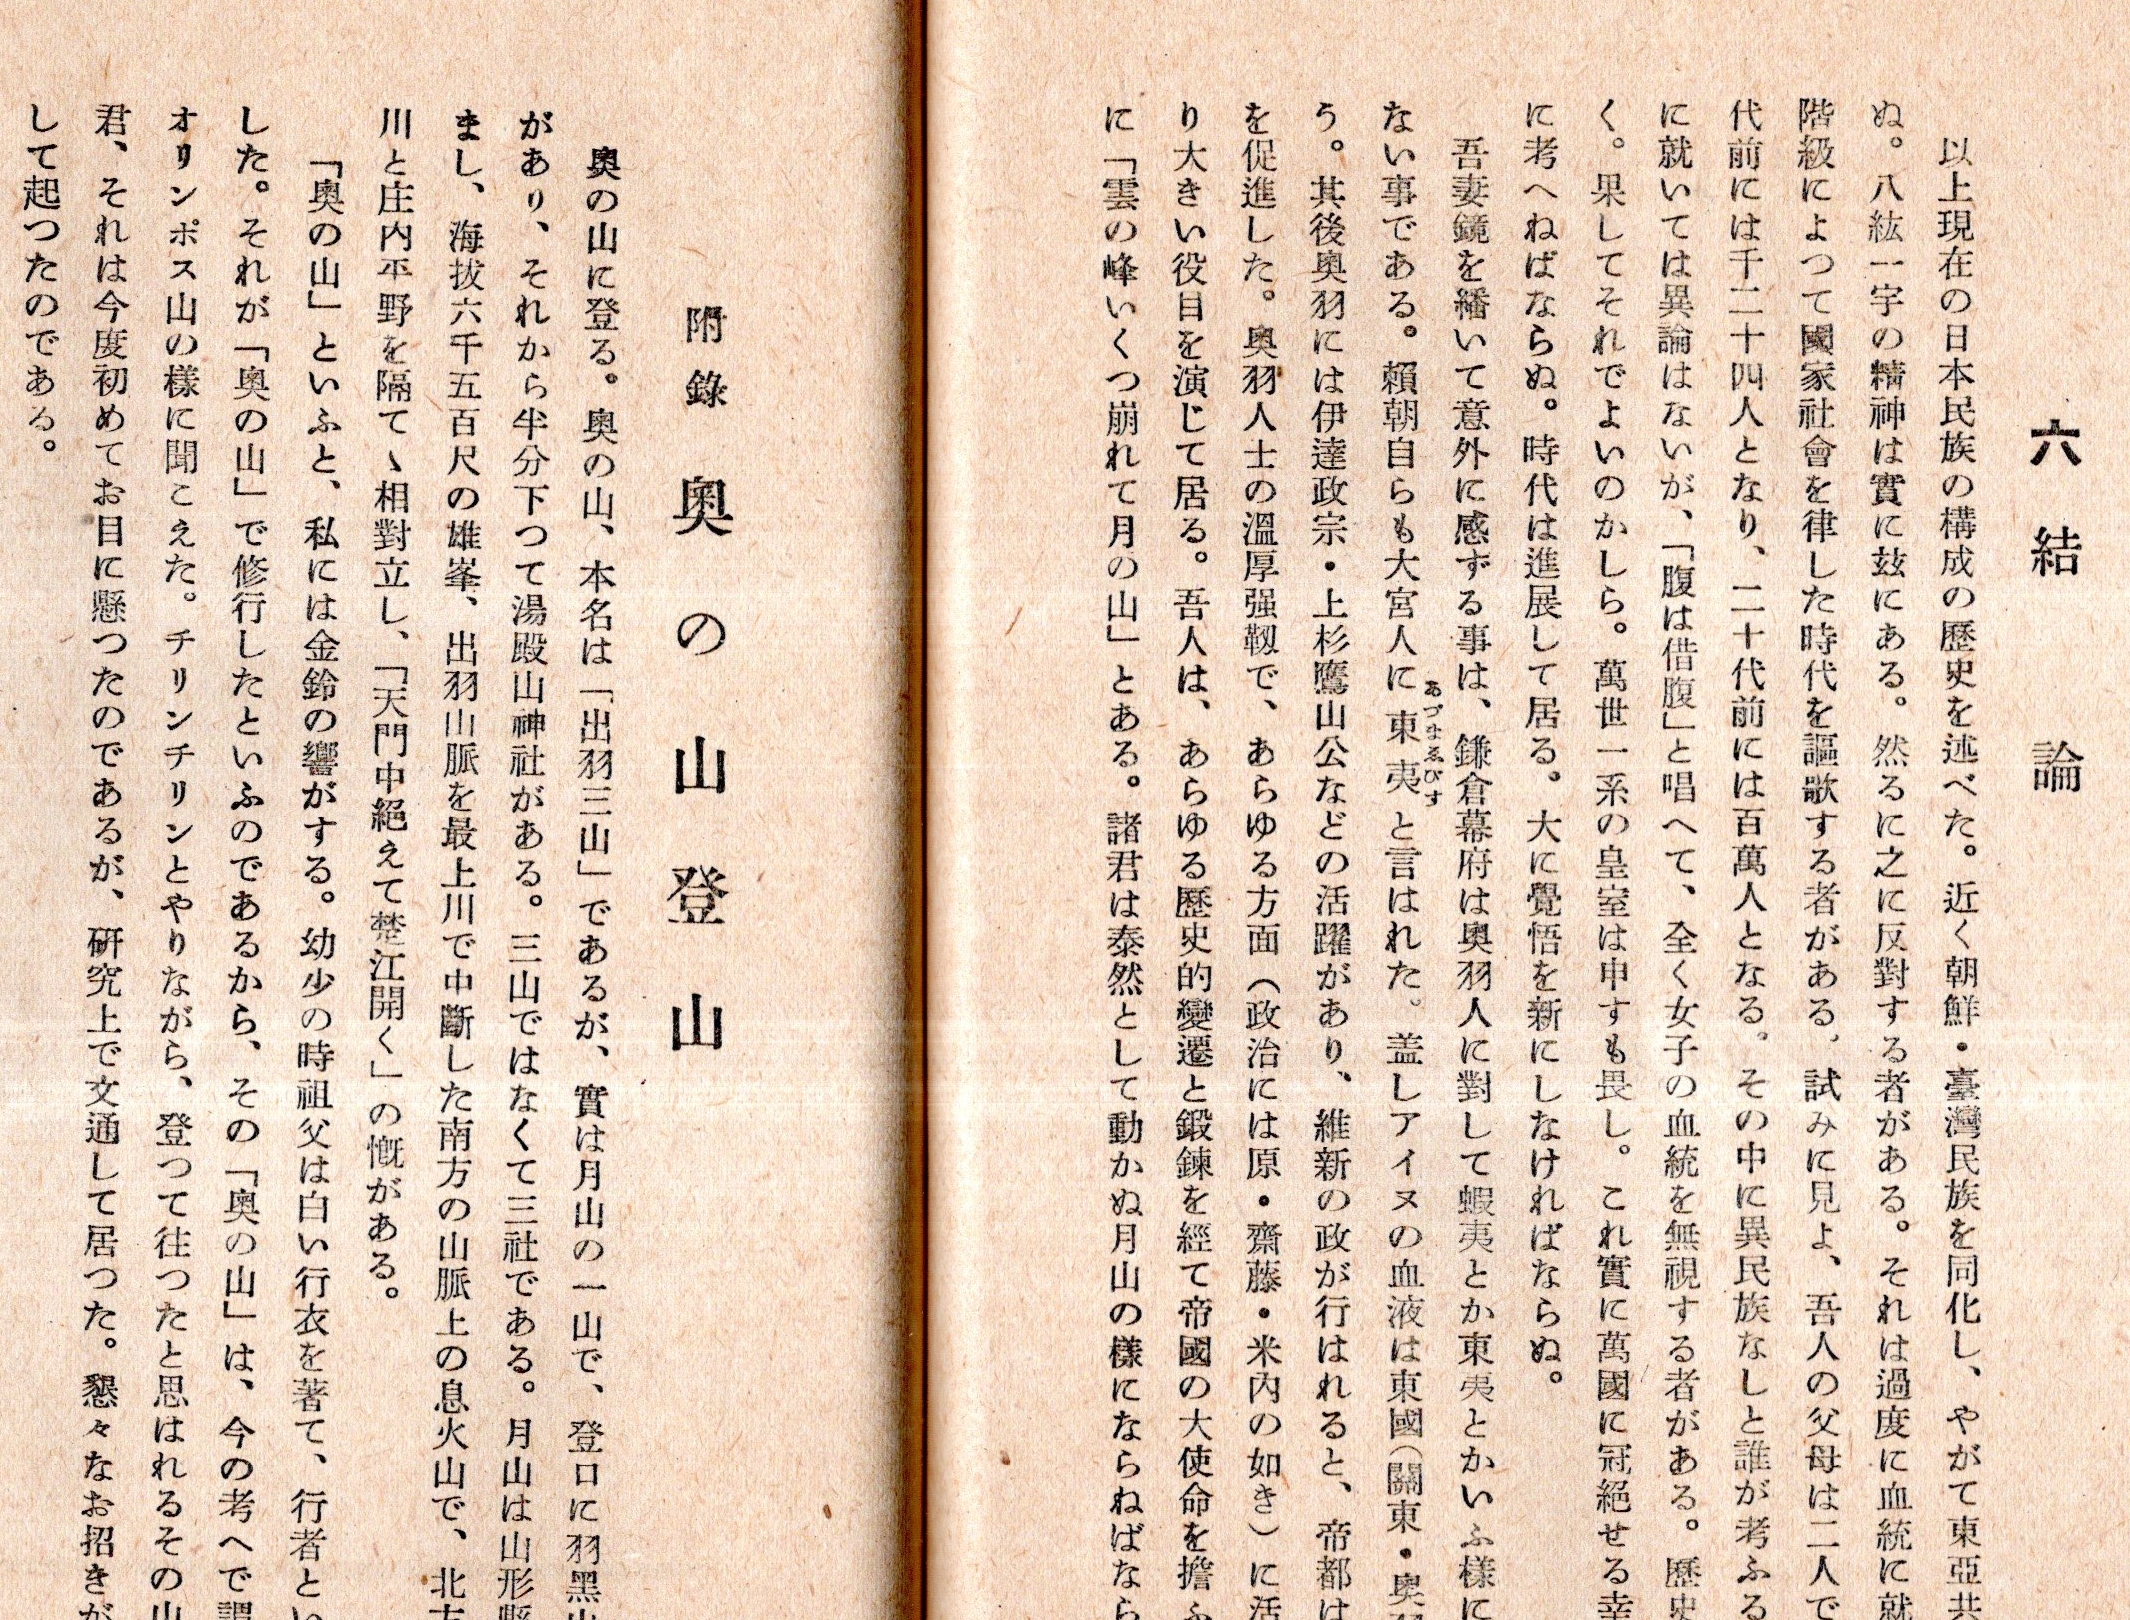 六 結 論
以上現在の日本民族の構成の歷史を述べた。近く朝鮮・臺灣民族を同化し、やがて東亞共
ぬ。八紘一宇の精神は實に玆にある。然るに之に反對する者がある。それは過度に血統に就
階級によつて國家社會を律した時代を謳歌する者がある。試みに見よ、吾人の父母は二人で
代前には千二十四人となり、二十代前には百萬人となる。その中に異民族なしと誰が考ふる
に就いては異論はないが、「腹は借腹」と唱へて、全く女子の血統を無視する者がある。歷史
く。果してそれでよいのかしら。萬世一系の皇室は申すも畏し。これ實に萬國に冠絕せる幸
に考へねばならぬ。時代は進展して居る。大に覺悟を新にしなければならぬ。
吾妻鏡を繙いて意外に感ずる事は、鎌倉幕府は奧羽人に對して蝦夷とか東夷とかいふ樣に
ない事である。賴朝自らも大宮人に東夷と言はれた。盖しアイヌの血液は東國（關東・奧羽
あづまゑびす
う。其後奧羽には伊達政宗・上杉鷹山公などの活躍があり、維新の政が行はれると、帝都は
を促進した。奧羽人士の溫厚强靱で、あらゆる方面（政治には原・齋藤・米內の如き）に活
り大きい役目を演じて居る。吾人は、あらゆる歷史的變遷と鍛鍊を經て帝國の大使命を擔ふ
に「雲の峰いくつ崩れて月の山」とある。諸君は泰然として動かぬ月山の樣にならねばなら
附錄 奧の山登山
奧の山に登る。奧の山、本名は「出羽三山」であるが、實は月山の一山で、登口に羽黑山
があり、それから半分下つて湯殿山神社がある。三山ではなくて三社である。月山は山形縣
まし、海拔六千五百尺の雄峯、出羽山脈を最上川で中斷した南方の山脈上の息火山で、北方
川と庄內平野を隔てゝ相對立し、「天門中絕えて楚江開く」の慨がある。
「奧の山」といふと、私には金鈴の響がする。幼少の時祖父は白い行衣を著て、行者とい
した。それが「奧の山」で修行したといふのであるから、その「奧の山」は、今の考へで謂
オリンポス山の樣に聞こえた。チリンチリンとやりながら、登つて往つたと思はれるその山
君、それは今度初めてお目に懸つたのであるが、硏究上で文通して居つた。懇々なお招きが
して起つたのである。